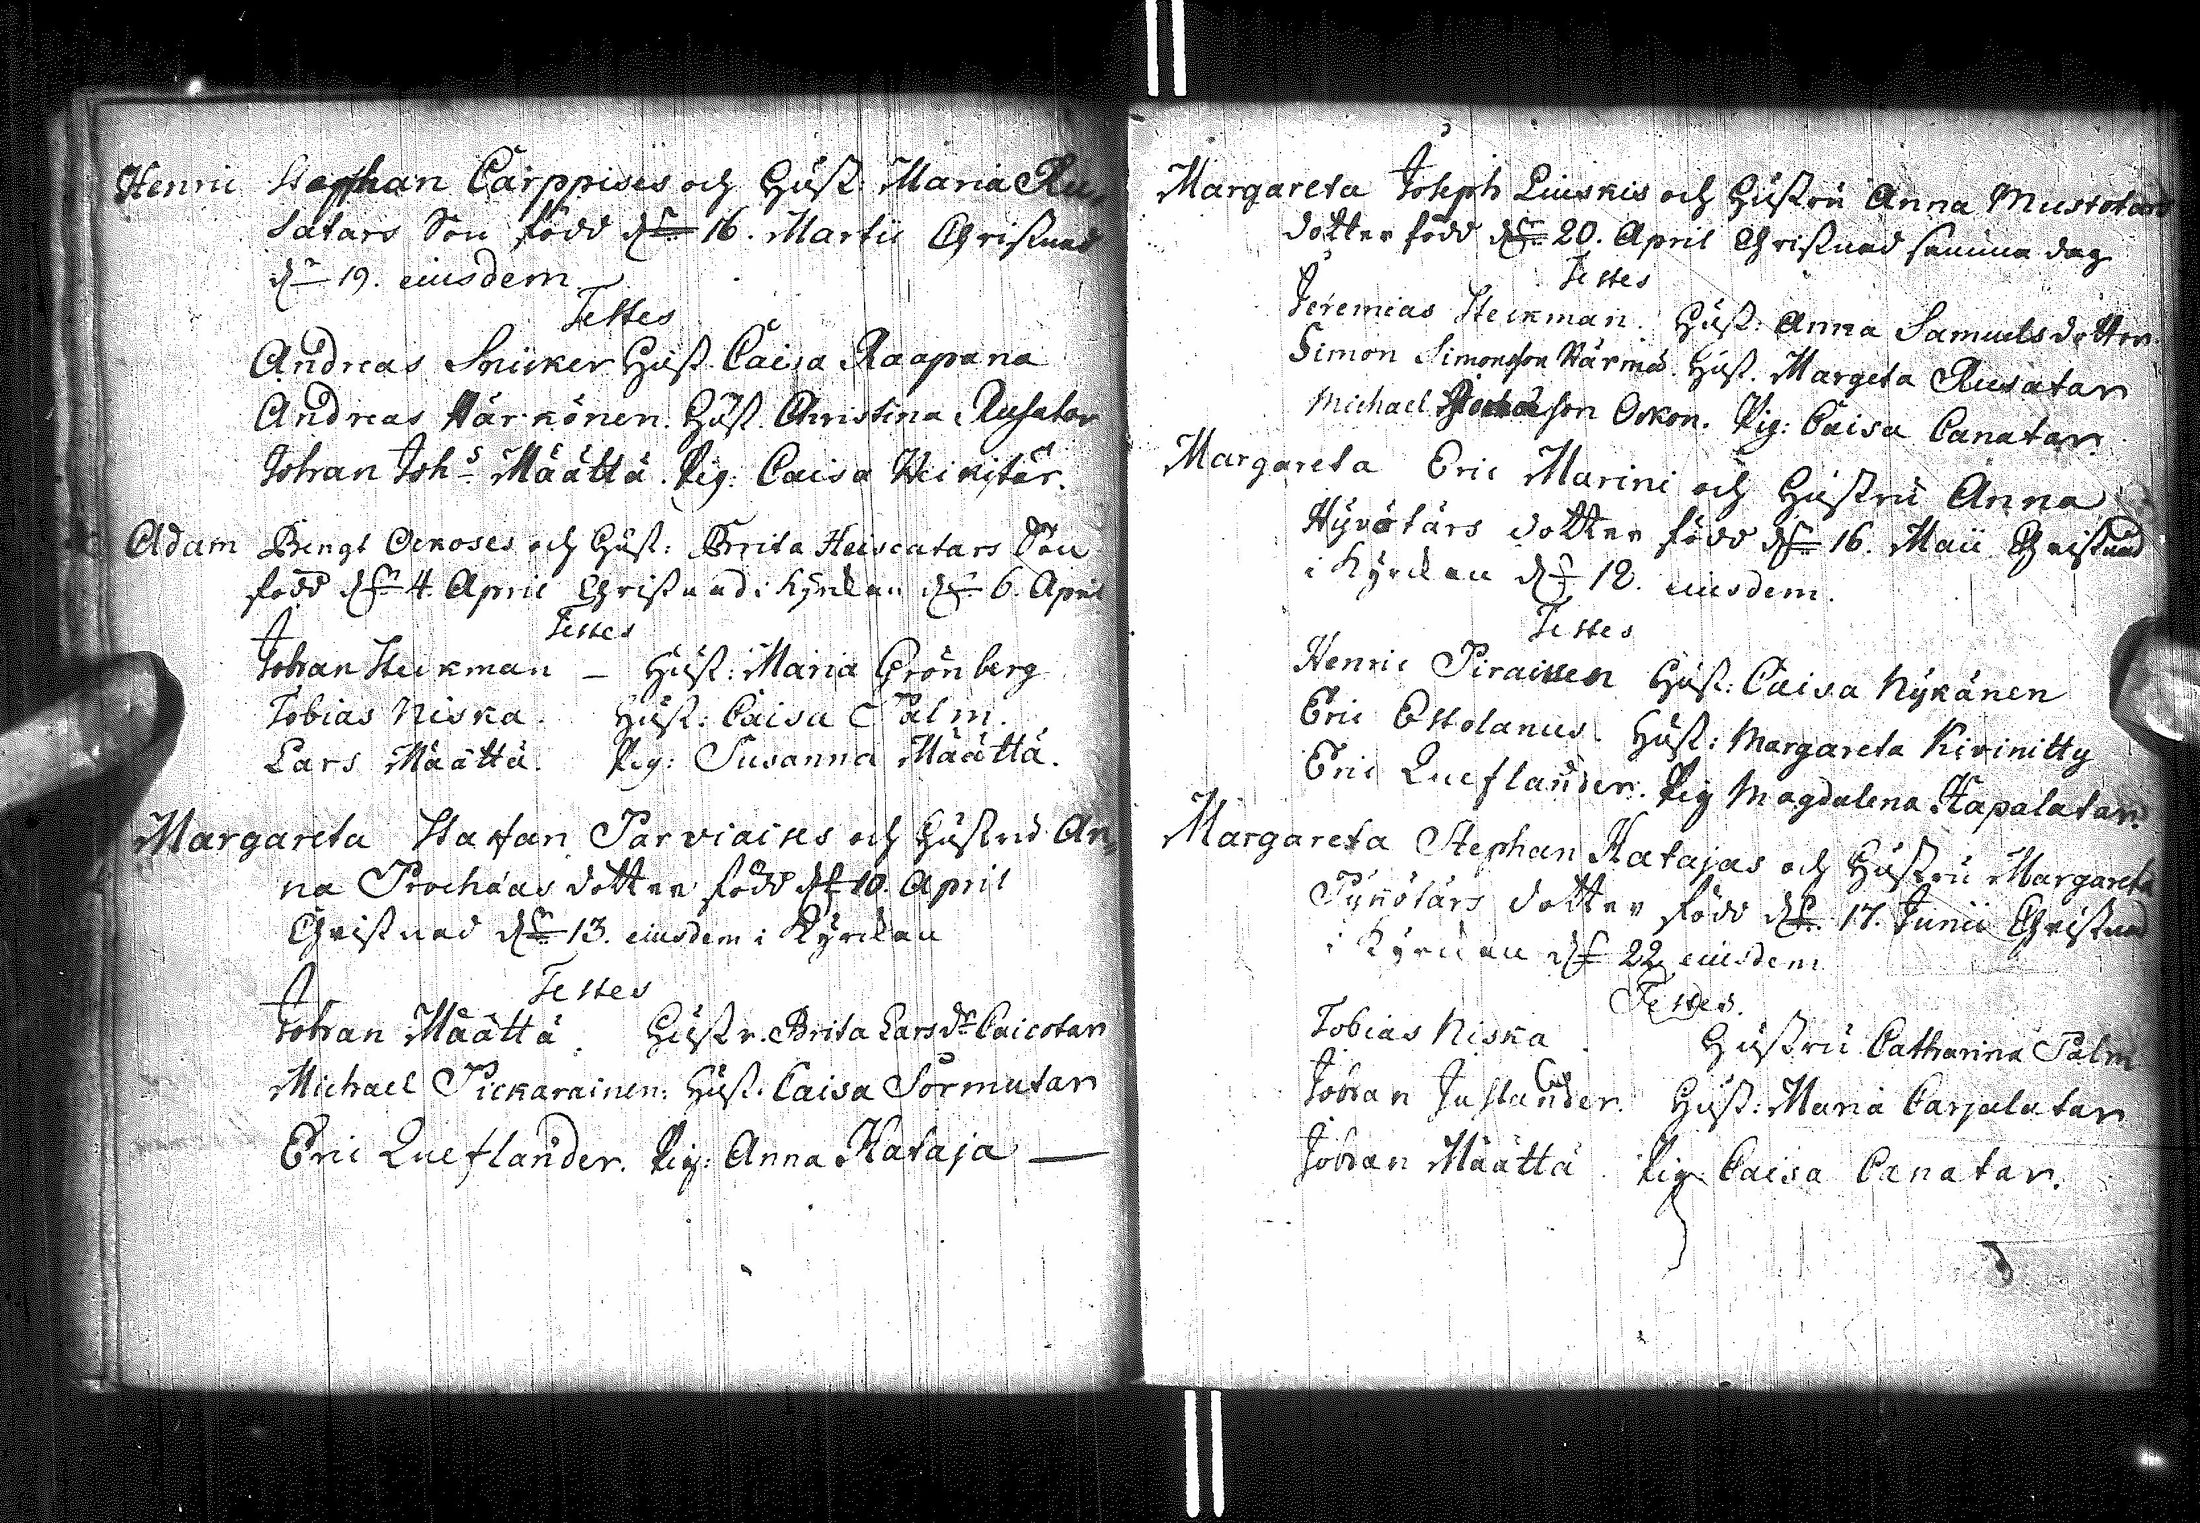 Henric Stephan Carppises och Hust: Maria Ru,
satars Son född d. 16. Martii Christnad
dn 19. eiusdem
Testes
Andreas Snicker Hust. Caisa Raapana
Andreas Härkönen. Hust. Christina Rusatar
Johan Johs Määttä. Pig: Caisa Heikitär.
Adam Bengt Ockoses och Hust: Brita Heiscatars Son
född d. 4 April Christnad i Kyrckan d. 6. April
Testes
Johan Steckman — Hust: Maria Grönberg
Tobias Niska. Hust: Caisa Palm.
Lars Määttä. Pig: Susanna Määttä.
Margareta Staffan Parviaises och Hustru An,
na Prochdas dotter född d. 10. April
Christnad d. 13. eiusdem i Kyrckan
Testes
Johan Määttä. Hustr. Brita Larsdr Caicotar
Michael Pickarainen: Hust: Caisa Sormutar
Eric Queflander. Pig: Anna Kataja —
Margareta Joseph Liuskis och Hustru Anna Mustotars
dotter född d. 20. April Christnad samma dag
Testes
Jeremias Steckman. Hust: Anna Samuelsdotter.
Simon Simonsson Kärnä. Hust. Margeta Rusatar
Michael son Ockon. Pig: Caisa Canatar.
Margareta Eric Marini och Hustru Anna
Hyvötärs dotter född d. 16. Maii Christnad
i Kyrckan d. 18. eiusdem.
Testes
Henric Pirainen Hust: Caisa Nykänen
Eric Ostolanus. Hust: Margareta Kivinitty
Eric Queflander. Pig Magdalena Kapalatar.
Margareta Stephan Katajas och Hustru Margareta
Pynnötärs dotter född d. 17. Junii Christnad
i Kyrckan d. 22 eiusdem
Testes.
Tobias Niska. Hustru Catharina Palm
Johan Juslander. Hust: Maria Carpalatar
Johan Määttä. Pig: Caisa Canatar.